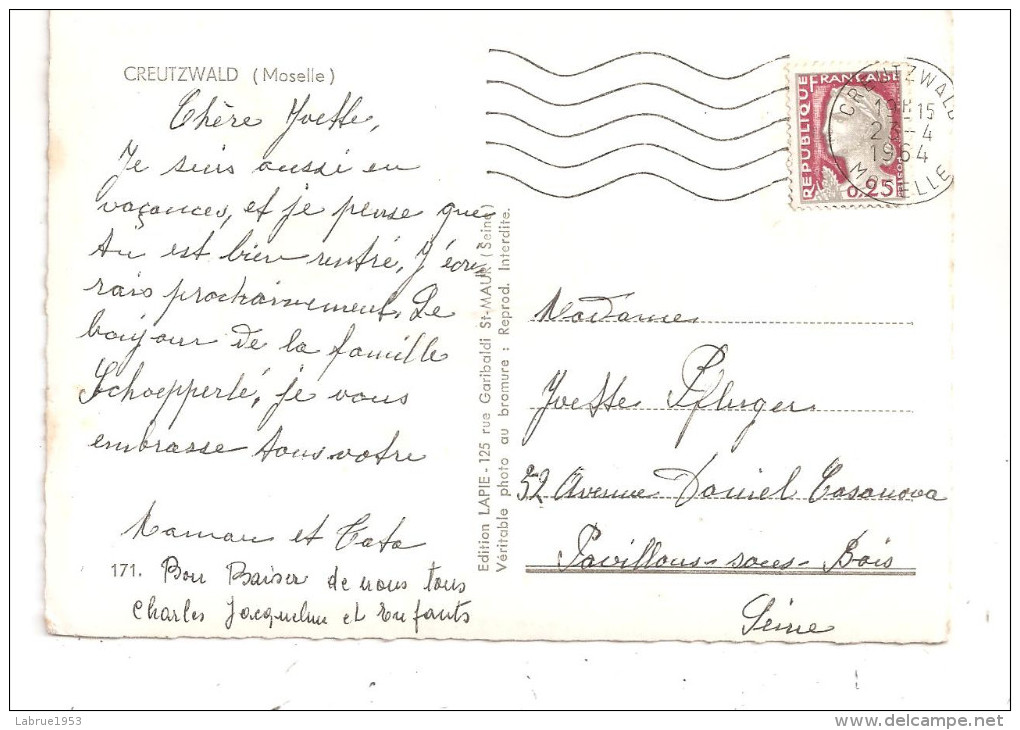 CREUTZWALD (Moselle)
Chère Yvette,
Je suis aussi en
vacances, et je pense que
tu est bien rentré, J'écri
rais prochainement. Le
bonjour de la famille
Schoepperlé, je vous
embrasse tous votre
Maman et Tata
171. Bon Baiser de nous tous
Charles Jacqueline et Enfants
Edition LAPIE - 125 rue Garibaldi St-MAUR (Seine)
Véritable photo au bromure : Reprod. Interdite.
REPUBLIQUE FRANÇAISE
0,25
CREUTZWALD
19H15
23-4
1964
MOSELLE
Madame
Yvette Pfluger
52 Avenue Daniel Casanova
Pavillons-sous-Bois
Seine
Labrue1953
www.delcampe.net